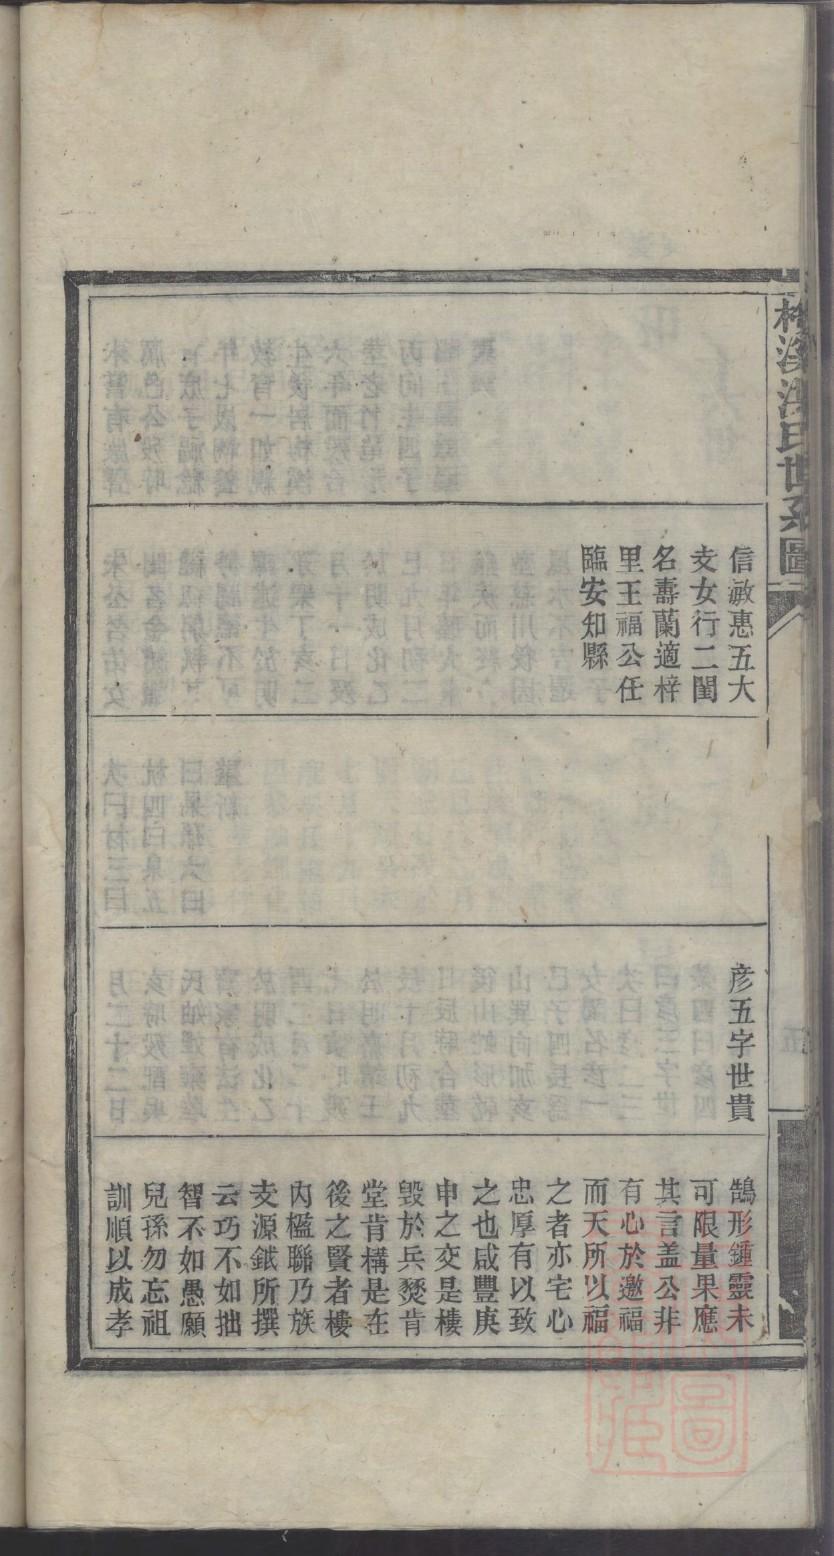 氏世系圖
信敏惠五大
㕛女行二閨
名壽蘭適梓
里王福公任
臨安知縣
彦五字世貴
鵠形鍾靈未
可限量果應
其言盖公非
有心於邀福
而天所以福
之者亦宅心
忠厚有以致
之也咸豐庚
申之交是樓
毀於兵燹肯
堂肯構是在
後之賢者樓
內楹聯乃族
㕛源鉞所撰
云巧不如拙
智不如愚願
兒孫勿忘祖
訓順以成孝